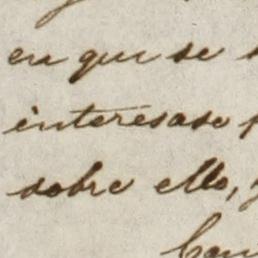 en que se
interesase
sobre ello,